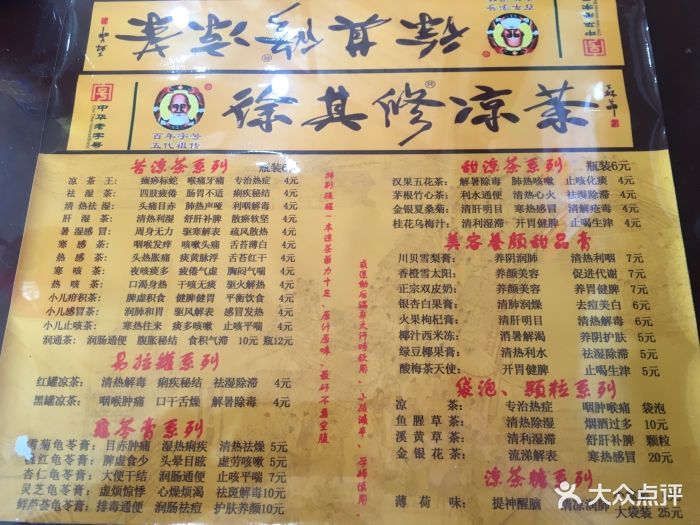 徐其修凉茶
百年字号
五代祖传
中华老字号
徐其修凉茶
百年字号
五代祖传
中华老字号
苦凉茶系列 瓶装6元
凉茶王: 癍痧标蛇 喉痛牙痛 专治热症 4元
祛湿茶: 四肢疲倦 肠胃不适 痢疾秘结 4元
清热祛湿: 头痛目赤 肺热声哑 利咽解毒 4元
肝湿茶: 清热利湿 舒肝补脾 散瘀软坚 4元
暑湿感冒: 周身无力 驱寒解表 疏风散热 4元
寒感茶: 咽喉发痒 咳嗽头痛 舌苔薄白 4元
热感茶: 头热胀痛 痰黄脉浮 舌苔红干 4元
寒咳茶: 夜咳痰多 疲倦气虚 胸闷气喘 4元
热咳茶: 口渴身热 干咳无痰 驱火解毒 4元
小儿疳积茶: 脾虚积食 健脾健胃 平衡饮食 4元
小儿感冒茶: 润肺和胃 驱风解表 感冒发热 4元
小儿止咳茶: 寒热往来 痰多咳嗽 止咳平喘 4元
润通茶: 润肠通便 腹胀秘结 食积气滞 10元 瓶12元
易拉罐系列
红罐凉茶: 清热解毒 痢疾秘结 祛湿除滞 4元
黑罐凉茶: 咽喉肿痛 口干舌燥 解暑除毒 4元
龟苓膏系列
雪菊龟苓膏: 目赤肿痛 湿热痢疾 清热祛燥 5元
桂红龟苓膏: 脾虚食少 头晕目眩 虚劳咳嗽 5元
杏仁龟苓膏: 大便干结 润肠通便 止咳平喘 7元
灵芝龟苓膏: 虚烦惊悸 心燥烦渴 祛斑解毒 10元
鲜芦荟龟苓膏: 排毒通便 润肠祛痘 护肤养颜 10元
特别提醒:本凉茶药力十足、原汁原味、最好不要空腹
或运动后满身大汗时饮用、小孩减半、孕妇慎用。
甜凉茶系列 瓶装6元
汉果五花茶: 解暑除毒 肺热咳嗽 止咳化痰 4元
茅根竹心茶: 利水通便 清热心火 祛湿除滞 4元
金银夏桑菊: 清肝明目 寒热感冒 清解疮毒 4元
桂花乌梅汁: 清利湿滞 开胃健脾 止喝生津 4元
美容养颜甜品膏
川贝雪梨膏: 养阴润肺 清热利咽 7元
香橙雪太阳: 养颜美容 促进代谢 7元
正宗双皮奶: 养颜美容 养胃健脾 7元
银杏白果膏: 清肺润燥 去痘美白 6元
火果枸杞膏: 清肝明目 清热解毒 6元
椰汁西米冻: 消暑解渴 养阴护肤 5元
绿豆椰果膏: 清热利水 祛湿除滞 5元
酸梅茶天使: 开胃健脾 止喝生津 5元
袋泡、颗粒系列
凉茶: 专治热症 咽肿喉痛 袋泡
鱼腥草茶: 清热除湿 烟酒过多 10元
溪黄草茶: 清利湿滞 舒肝补脾 颗粒
金银花茶: 流涕解表 寒热感冒 20元
凉茶糖系列
薄荷味: 提神醒脑 清凉润肺 大袋装 25元
大众点评